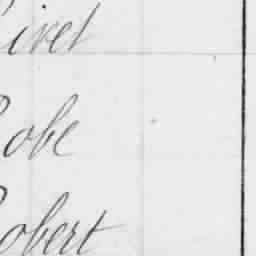 Rivet
Robe
Robert